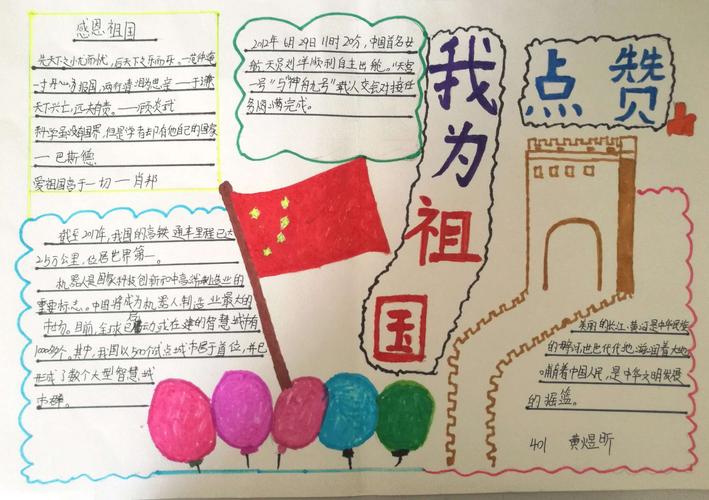 我为祖国
点赞
感恩祖国
先天下之忧而忧，后天下之乐而乐。一范仲淹
一寸丹心为报国，两行清泪为思亲一于谦
天下兴亡，匹夫有责。——顾炎武
科学虽没有国界，但是学者却有他自己的国家
一巴斯德
爱祖国高于一切一肖邦
2012年6月29日11时20分，中国首名女
航天员刘洋顺利自主出舱。“天宫
一号”与“神舟九号”载人交会对接任
务圆满完成。
截至2017年，我国的高铁通车里程已达
2.5万公里，位居世界第一。
机器人是国家科技创新和中高端制造业的
重要标志。中国将成为机器人制造业最大的
市场。目前，全球已启动或在建的智慧城市有
1000多个。其中，我国以500个试点城市居于首位，并已
形成了数个大型智慧城
市群。
美丽的长江、黄河是中华民族
的母亲河，世世代代地滋润着大地
哺育着中国人民，是中华文明发展
的摇篮。
401 黄煜昕